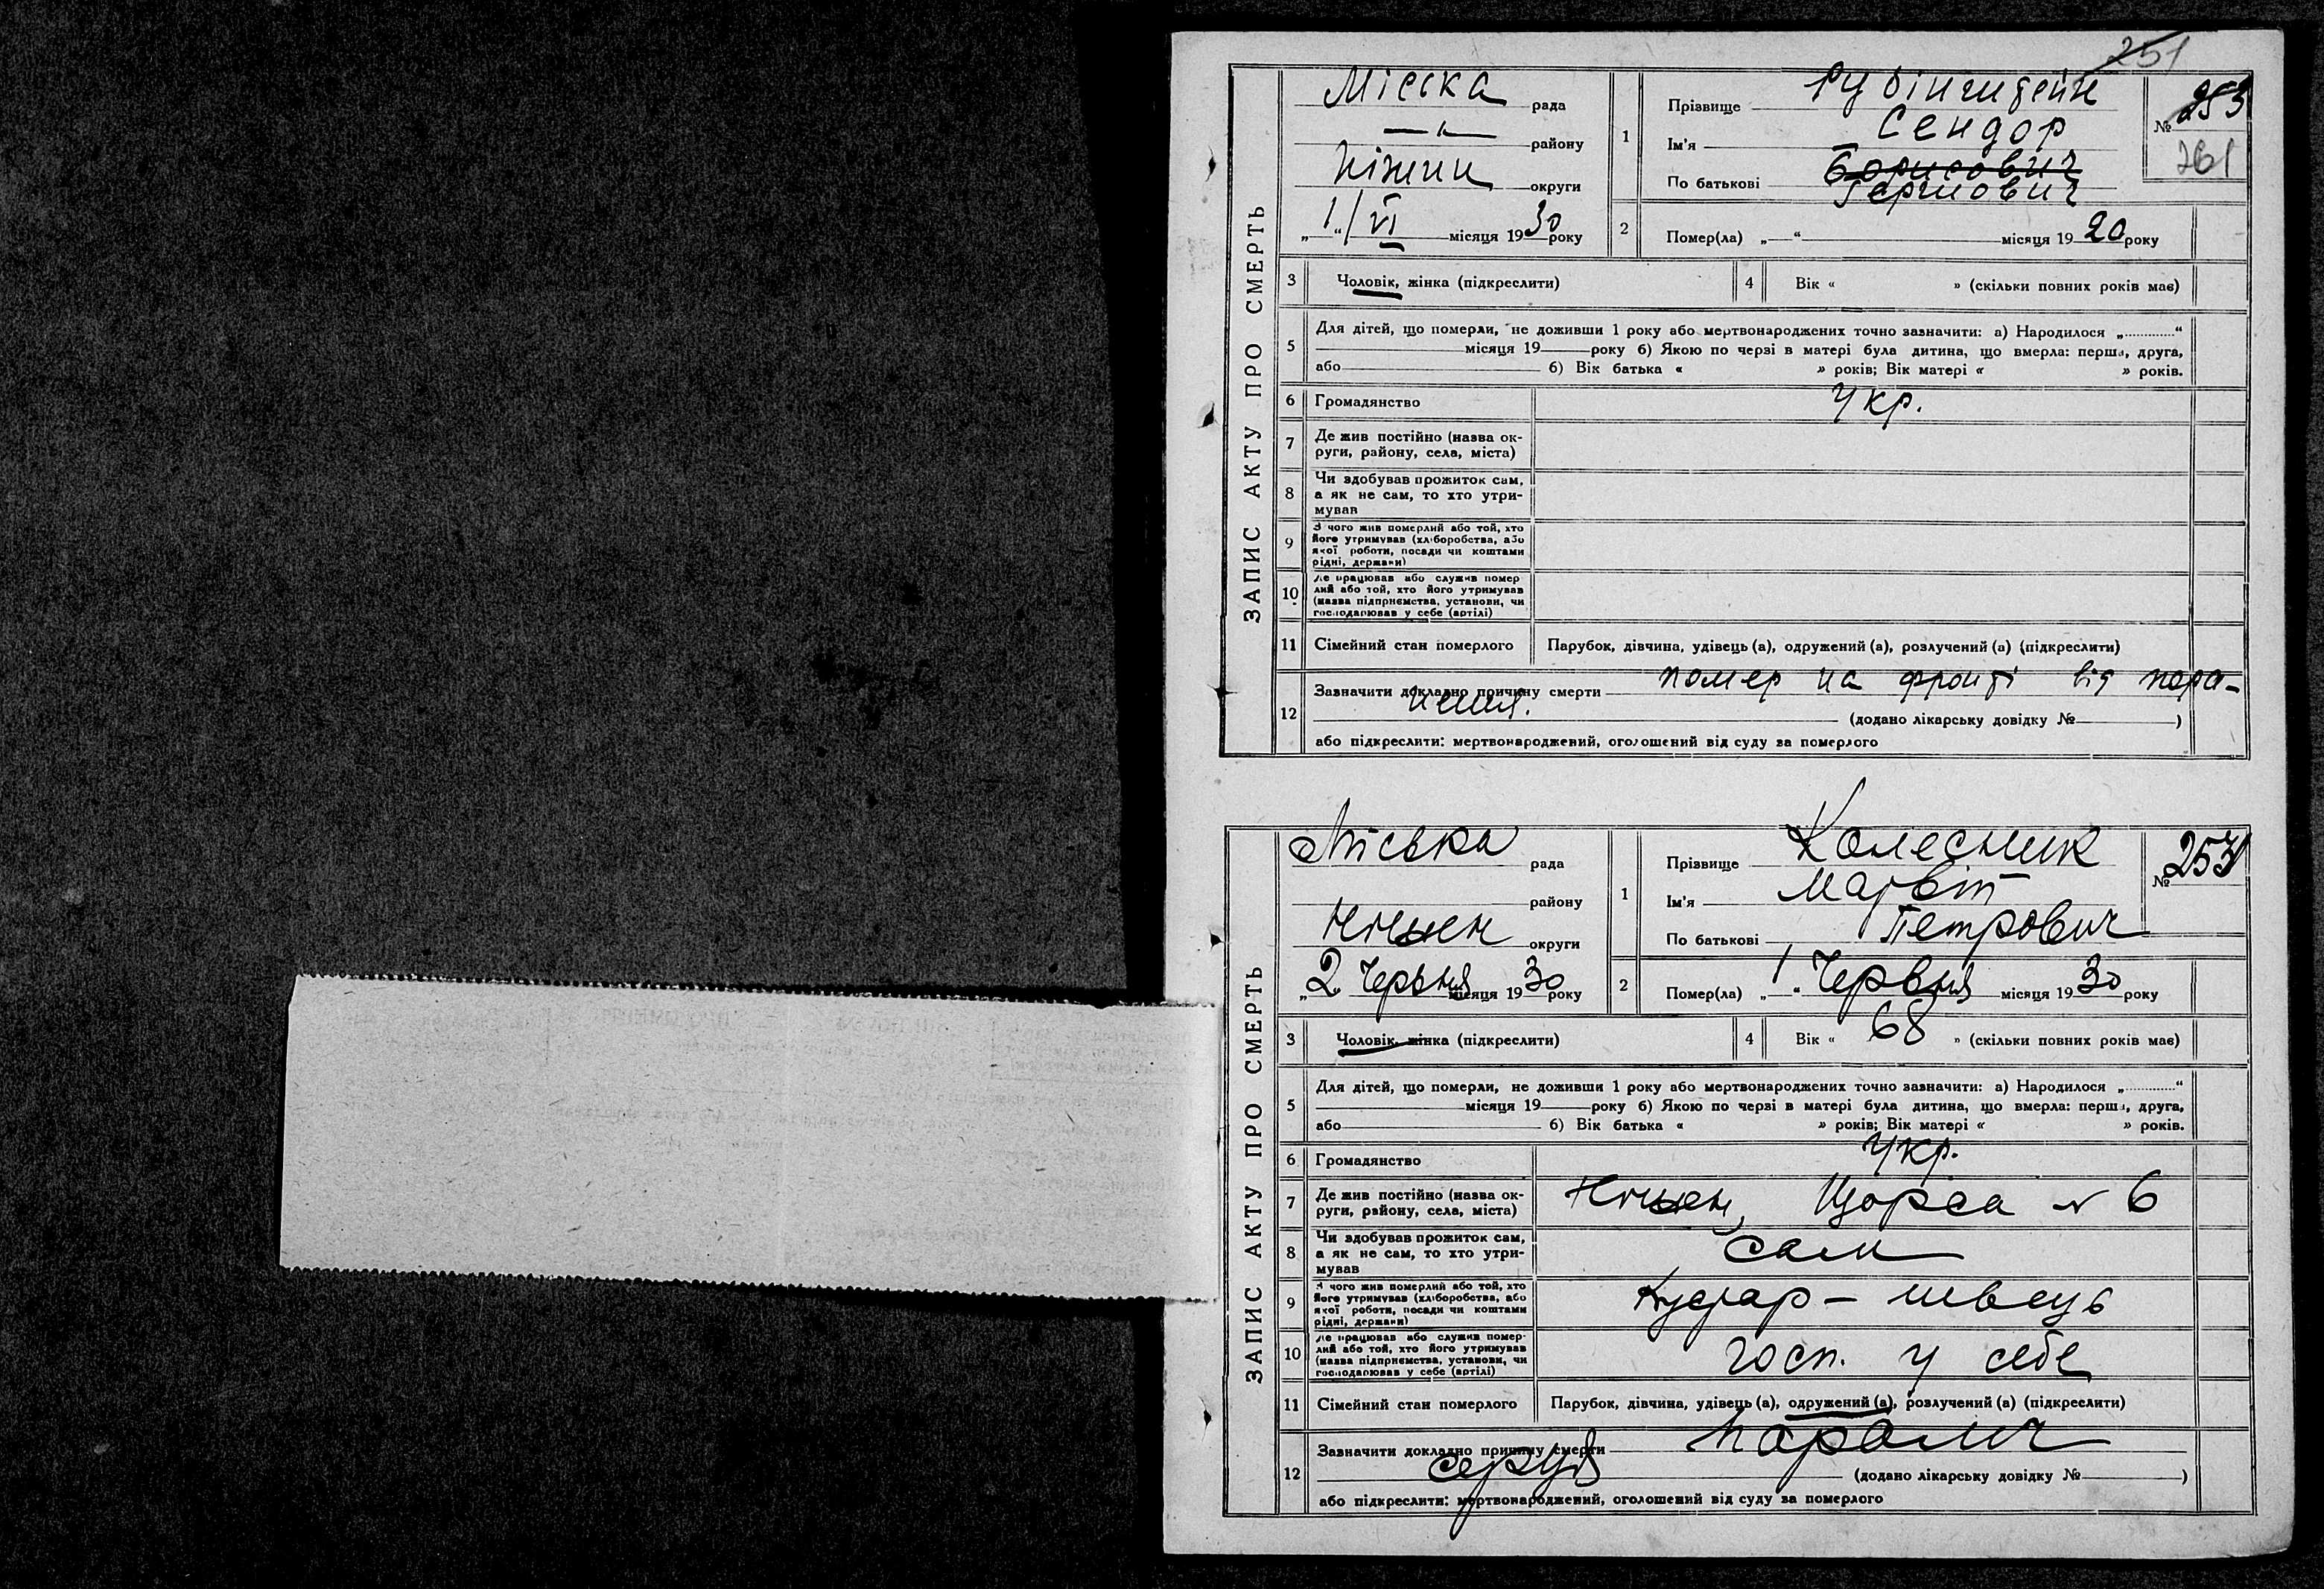 251
ЗАПИС АКТУ ПРО СМЕРТЬ
Міська рада
району
Ніжин округи
„1“/VI місяця 1930 року
1
Прізвище Рубінштейн
Ім'я Сендор
По батькові Борисович
№ 253
261
2
Помер(ла) „—“ місяця 1920 року
3 Чоловік, жінка (підкреслити)
4 Вік « » (скільки повних років має)
5
Для дітей, що померли, не доживши 1 року або мертвонароджених точно зазначити: а) Народилося „............“
місяця 19 року б) Якою по черзі в матері була дитина, що вмерла: перша, друга,
або б) Вік батька « » років; Вік матері « » років.
6 Громадянство Укр.
7 Де жив постійно (назва ок-
руги, району, села, міста)
8 Чи здобував прожиток сам,
а як не сам, то хто утри-
мував
9 З чого жив померлий або той, хто
його утримував (хліборобства, або
якої роботи, посади чи коштами
рідні, держави)
10 Де працював або служив помер
лий або той, хто його утримував
(назва підприємства, установи, чи
господарював у себе (артілі)
11 Сімейний стан померлого Парубок, дівчина, удівець (а), одружений (а), розлучений (а) (підкреслити)
12
Зазначити докладно причину смерти помер на фронті від пора-
нення.
(додано лікарську довідку № )
або підкреслити: мертвонароджений, оголошений від суду за померлого
ЗАПИС АКТУ ПРО СМЕРТЬ
Міська рада
району
Ніжен округи
„2 Червня місяця 1930 року
1
Прізвище Колесник
Ім'я Матвій
По батькові Петрович
№ 254
2
Помер(ла) „1“ Червня місяця 1930 року
3 Чоловік, жінка (підкреслити)
4 Вік « 68 » (скільки повних років має)
5
Для дітей, що померли, не доживши 1 року або мертвонароджених точно зазначити: а) Народилося „............“
місяця 19 року б) Якою по черзі в матері була дитина, що вмерла: перша, друга,
або б) Вік батька « » років; Вік матері « » років.
6 Громадянство Укр.
7 Де жив постійно (назва ок-
руги, району, села, міста)
Ніжен, Щорса № 6
8 Чи здобував прожиток сам,
а як не сам, то хто утри-
мував
сам
9 З чого жив померлий або той, хто
його утримував (хліборобства, або
якої роботи, посади чи коштами
рідні, держави)
Кустар – швець
10 Де працював або служив помер-
лий або той, хто його утримував
(назва підприємства, установи, чи
господарював у себе (артілі)
госп. у себе
11 Сімейний стан померлого Парубок, дівчина, удівець (а), одружений (а), розлучений (а) (підкреслити)
12
Зазначити докладно причину смерти параліч
серця
(додано лікарську довідку № )
або підкреслити: мертвонароджений, оголошений від суду за померлого